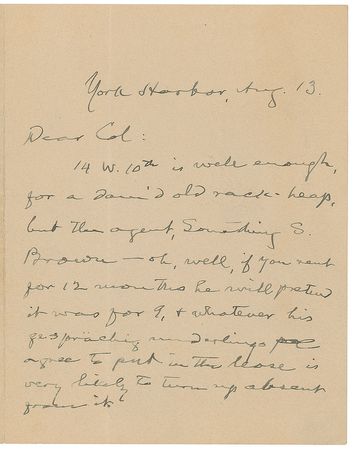 York Harbor, Aug. 13.
Dear Col:
14 W. 10th is well enough,
for a damn'd old rack-heap,
but the agent, Something S.
Brown — oh, well, if you rent
for 12 months he will pretend
it was for 9, & whatever his
underlings
agree to put in the lease is
very likely to turn up absent
from it.